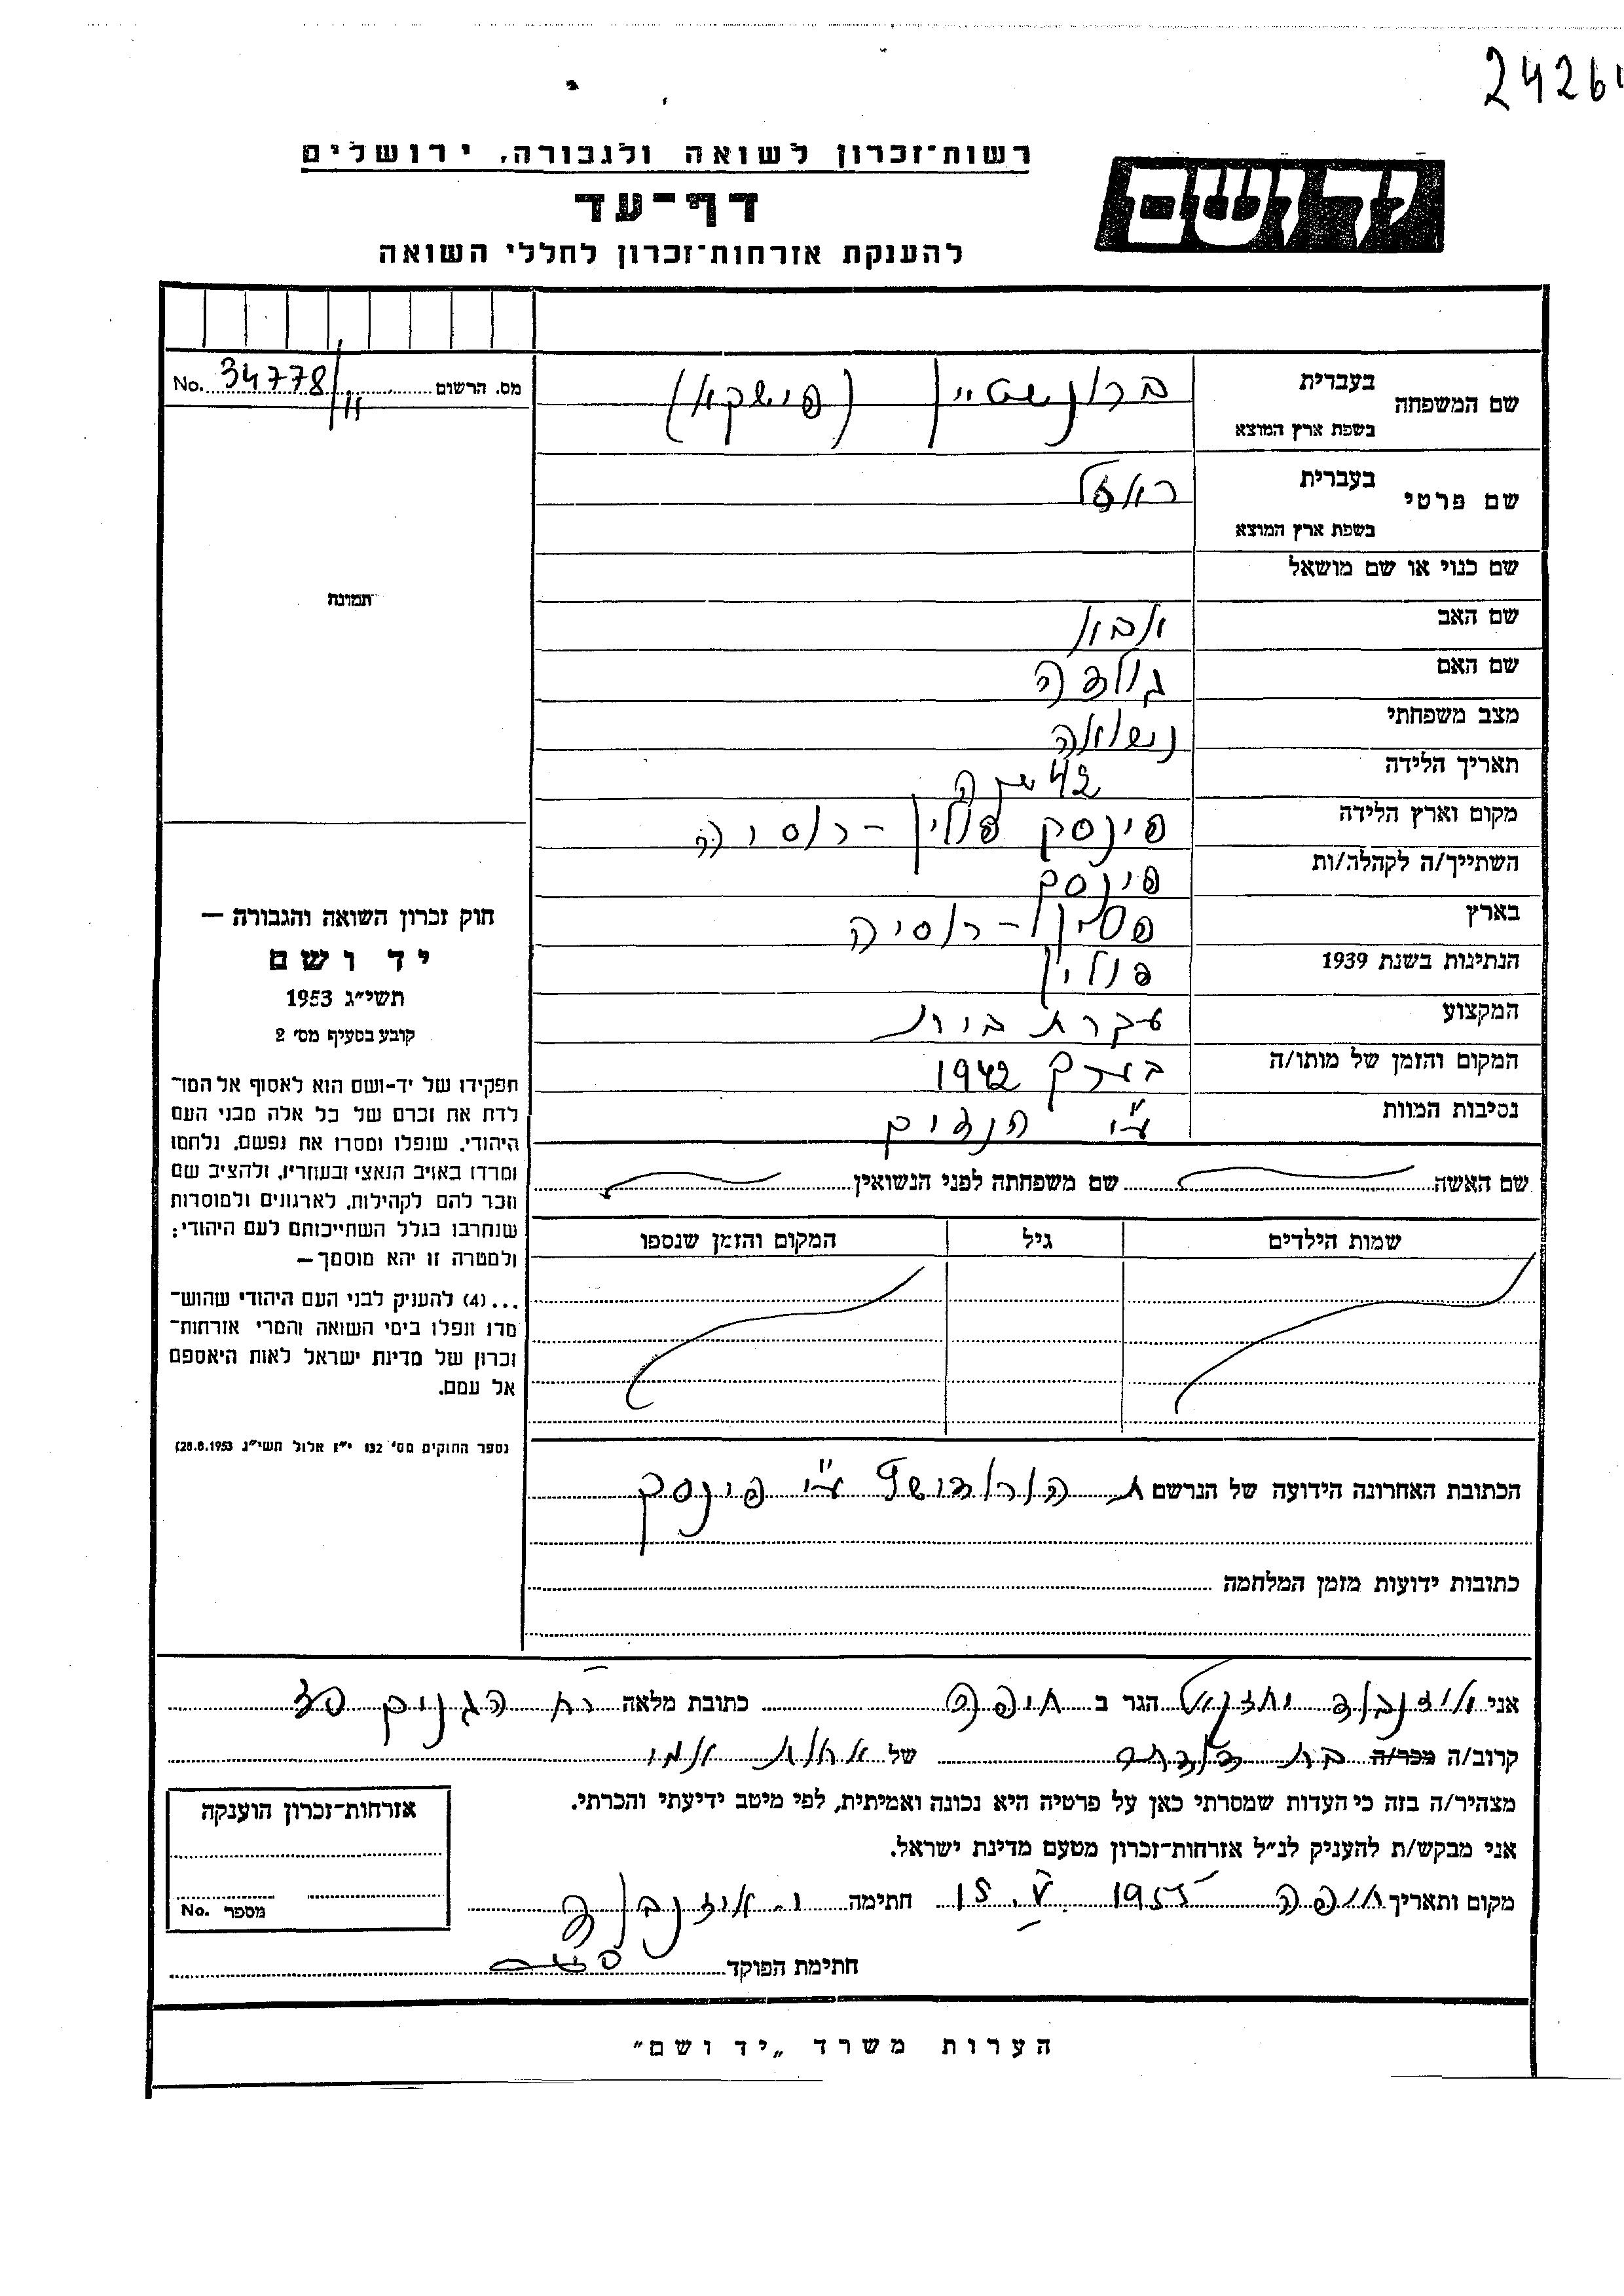 24264
רשות־זכרון לשואה ולגבורה, ירושלים
יד ושם
דף־עד
להענקת אזרחות־זכרון לחללי השואה
מס. הרשום 34778/11 No.
שם המשפחה
בעברית ברונשטיין (פישקא)
בשפת ארץ המוצא
שם פרטי
בעברית
בשפת ארץ המוצא
שם כנוי או שם מושאל
שם האב
שם האם גולדה
מצב משפחתי נשואה
תאריך הלידה 42 שנה
מקום וארץ הלידה פינסק פולין - רוסיה
השתייך/ה לקהלה/ות פינסק
בארץ רוסיה
הנתינות בשנת 1939 פולין
המקצוע עקרת בית
המקום והזמן של מותו/ה 1942
נסיבות המוות ע"י הנאצים
שם האשה שם משפחתה לפני הנשואין
שמות הילדים גיל המקום והזמן שנספו
הכתובת האחרונה הידועה של הנרשם ע"י פינסק
כתובות ידועות מזמן המלחמה
תמונה
חוק זכרון השואה והגבורה —
יד ושם
תשי״ג 1953
קובע בסעיף מס׳ 2
תפקידו של יד-ושם הוא לאסוף אל המו־
לדת את זכרם של כל אלה מבני העם
היהודי, שנפלו ומסרו את נפשם, נלחמו
ומרדו באויב הנאצי ובעוזריו, ולהציב שם
וזכר להם לקהילות, לארגונים ולמוסדות
שנחרבו בגלל השתייכותם לעם היהודי;
ולמטרה זו יהא מוסמך—
...(4) להענק לבני העם היהודי שהוש־
מדו ונפלו בימי השואה והמרי אזרחות־
זכרון של מדינת ישראל לאות היאספם
אל עמם.
(ספר החוקים מס׳ 132 י״ז אלול תשי״ג 28.8.1953)
אני יחזקאל הגר ב חיפה כתובת מלאה הגנים 30
קרוב/ה מכר/ה בת דודה של
מצהיר/ה בזה כי העדות שמסרתי כאן על פרטיה היא נכונה ואמיתית, לפי מיטב ידיעתי והכרתי.
אני מבקש/ת להעניק לנ״ל אזרחות־זכרון מטעם מדינת ישראל.
מקום ותאריך חיפה 15.V.1955 חתימה
חתימת הפוקד
אזרחות־זכרון הוענקה
מספר No.
הערות משרד „יד ושם״